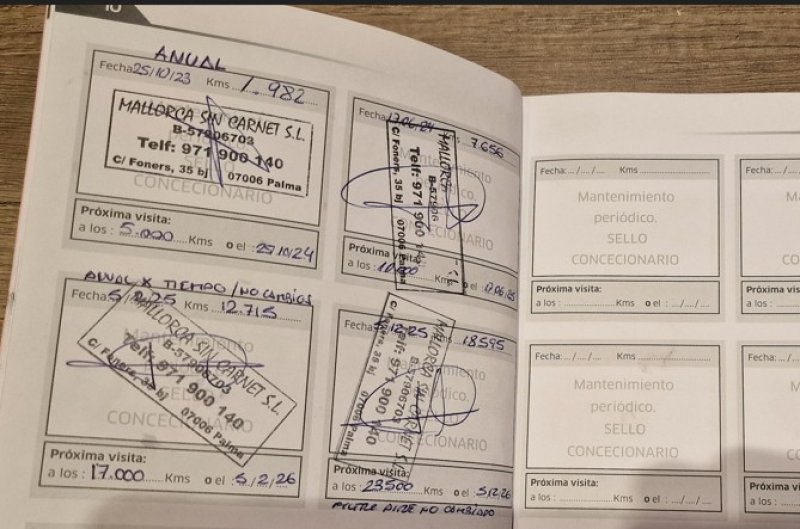 10
ANUAL
Fecha 25/10/23 Kms 1.982
MALLORCA SIN CARNET S.L.
B-57906703
Telf: 971 900 140
C/ Foners, 35 bj 07006 Palma
SELLO
CONCECIONARIO
Próxima visita:
a los : 5.000 Kms o el : 25/10/24
Fecha 12.06/24 Kms 7.656
MALLORCA S.L.
B-57906
Telf: 971 900 140
C/ Foners, 35 bj 07006 Palma
CONCECIONARIO
Próxima visita:
a los : 10.000 Kms o el : 12.06/25
ANUAL X TIEMPO / NO CAMBIOS
Fecha: 5/2/25 Kms 12.715
MALLORCA SIN CARNET S.L.
B-57906703
Telf: 971 900 140
C/ Foners, 35 bj 07006 Palma
CONCECIONARIO
Próxima visita:
a los : 17.000 Kms o el : 5/2/26
Fecha 5/12/25 Kms 18595
MALLORCA SIN CARNET S.L.
B-57906703
Telf: 971 900 140
C/ Foners, 35 bj 07006 Palma
CONCECIONARIO
Próxima visita:
a los : 23500 Kms o el : 5/12/26
FILTRE AIRE NO CAMBIADO
Fecha: .../.../... Kms
Mantenimiento
periódico.
SELLO
CONCECIONARIO
Próxima visita:
a los : Kms o el : .../.../...
Fecha: .../.../... Kms
Mantenimiento
periódico.
SELLO
CONCECIONARIO
Próxima visita:
a los : Kms o el : .../.../...
Fecha: .../
Próxima vis
a los :
Fecha: .../
Próxima vi
a los :